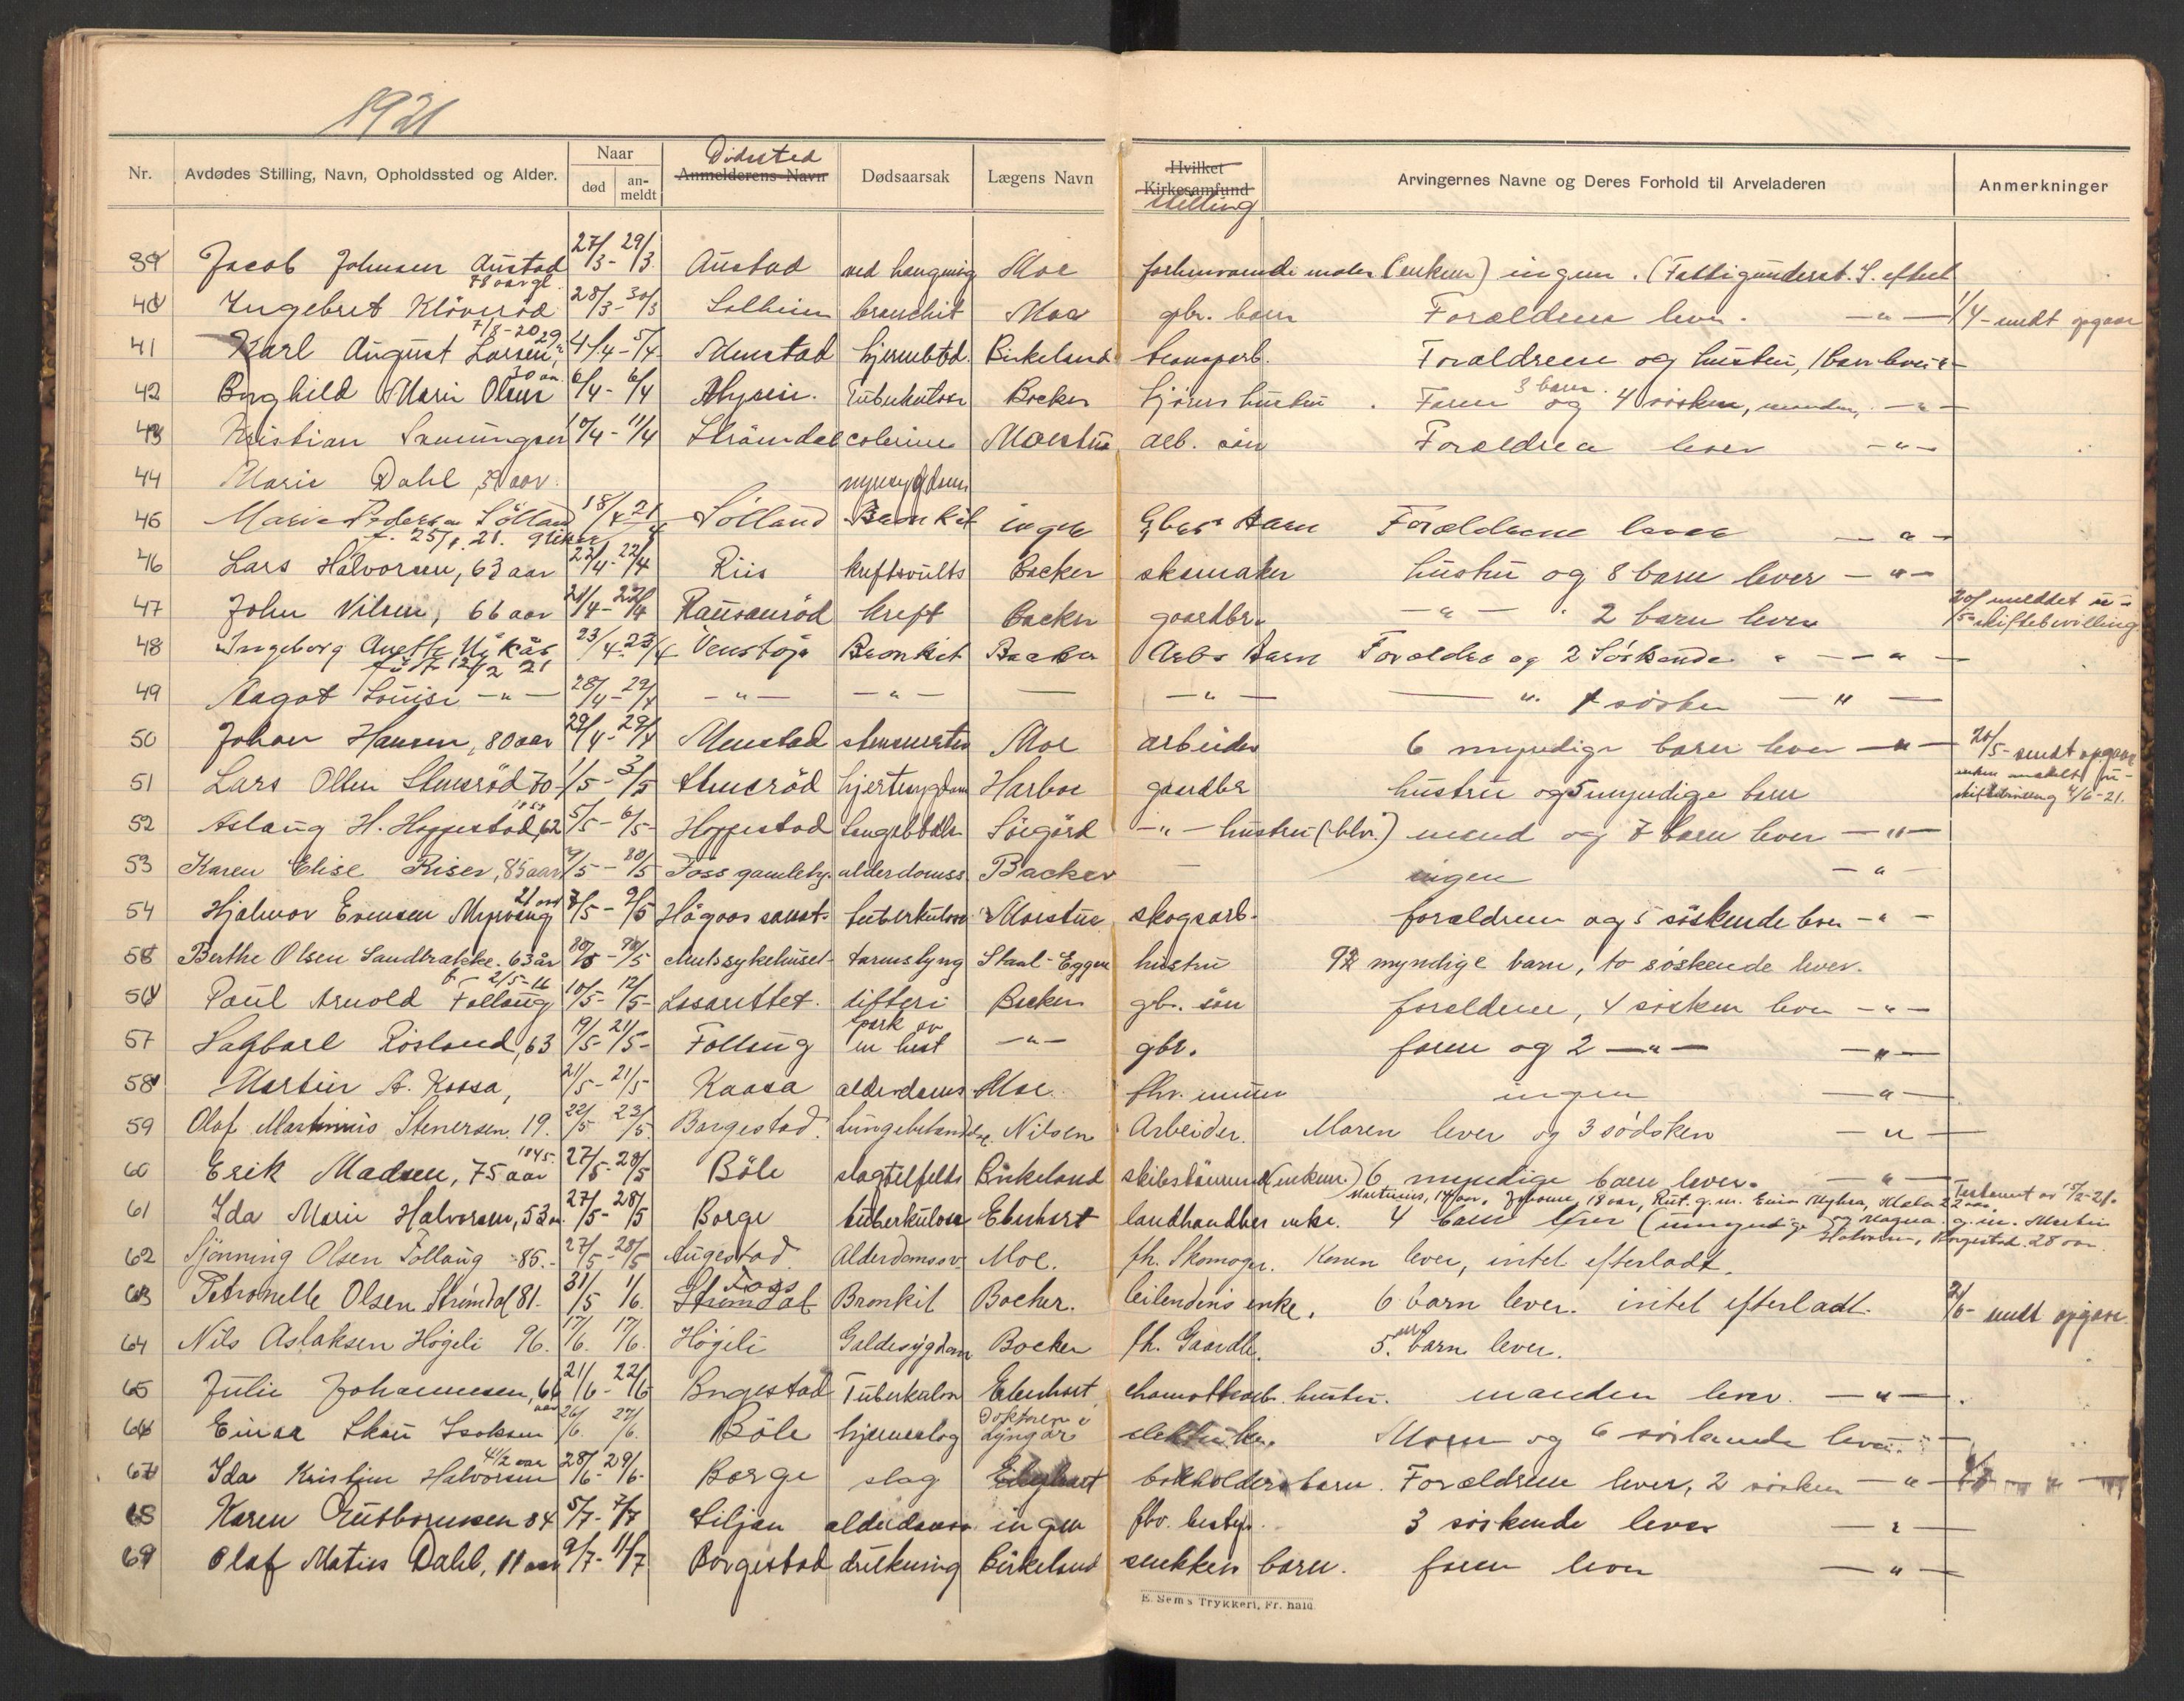 1921
Nr. Avdødes Stilling, Navn, Opholdssted og Alder. Naar død an-meldt Anmelderens Navn Dødssted Dødsaarsak Lægens Navn Hvilket Kirkesamfund Stilling Arvingernes Navne og Deres Forhold til Arveladeren Anmerkninger
39 Jacob Johnsen Austad 78 aar gl. 27/3 - 29/3 Austad ved hængning Moe forhenværende maler (enken) ingen. (Fattigunderst. I. efterl
40 Ingebret Kløverød 7/8-20 28/3 - 30/3 Solheim bronchit Moe gbr. barn Forældrene lever. - " - 1/4 - sendt opgave
41 Karl August Larsen, 29 4/4 - 5/4 Menstad hjernebtd. Birkeland transparb. Forældrene og hustru, 1 barn lever - " -
42 Borghild Marie Olsen 30 aar 6/4 - 6/4 Tuberkulose Backer hustru Faren og 4 søsken, manden, 3 barn - " -
43 Kristian 10/4 - 11/4 Strømdal colerine Moestue arb. søn Forældrea lever - " -
44 Marie Dahl, 51 aar. nyresygdom
45 Marie Pedersen Sølland f. 25/1. 21. 18/4 21/4 Sølland Bronkit ingen Gbr. Barn Forældrene lever - " -
46 Lars Halvorsen, 63 aar 22/4 - 22/4 Riis kreftsvulst Backer skomaker hustru og 8 barn lever - " -
47 John Nilsen, 66 aar 21/4 - 22/4 Rausanrød kreft Backer gaardbr. - " - 2 barn lever 20/5 meddelt u- skiftebevilling
48 Ingeborg Anette Nykås født 12/2 21 23/4 - 23/4 Venstøp Bronkit Backer Arb. Barn Forældre og 2 Søskende - " -
49 Aagot Louise - " - 28/4 - 29/4 - " - - " - — - " - - " - 1 søsken - " -
50 Johan Hansen, 80 aar 29/4 - 29/4 Menstad Moe arbeider 6 myndige barn lever - " - 20/5 - sendt opgave
51 Lars Olsen Stensrød 70 1/5 - 3/5 Stensrød hjertesygdom Harboe gaardbr hustru og 5 myndige barn enken meddelt u- skiftebevilling 4/6-21.
52 Aslaug H. Hoppestad, 62 5/5 - 6/5 Hoppestad Lungebtdls. Søegård - " - hustru (blv.) mand og 7 barn lever - " -
53 Karen Elise Riser, 85 aar 9/5 - 10/5 Foss gamlehj. alderdomss Backer — ingen - " -
54 Hjalmar Evensen Myrvang 21 aar 7/5 - 9/5 Høgaas sanat. tuberkulose Moestue skogsarb. forældrene og 5 søskende lever - " -
55 Berthe Olsen Sandbakke. 63 år Amtssykehuset tarmslyng Staal-Eggen hustru myndige barn, to søskende lever.
56 Paul Arnold Follaug f. 2/5-16 10/5 - 12/5 Lasarettet. difteri Backer gb. søn forældrene, 4 søsken lever - " -
57 Hagbart Røsland, 63 19/5 - 21/5 Follaug spark av en hest - " - gbr. faren og 2 - " - - " -
58 Martin A. Kaasa, 21/5 - 21/5 Kaasa alderdoms Moe fhv. murer ingen - " -
59 Olaf Martinius Stenersen. 19. 22/5 23/5 Borgestad. Lungebetændelse. Nilsen Arbeider. Moren lever og 3 sødsken - " -
60 Erik Madsen, 75 aar 1845. 27/5 - 28/5 Bøle slagtilfelde Birkeland skibstømmerm. (enkem.) 6 myndige barn lever. - " -
61 Ida Marie Halvorsen, 53 aar 27/5 - 28/5 Borge tuberkulose Eberhart landhandler enke. 4 barn lever (umyndige Martinius, 14 aar. 18 aar, Rut. g.m. og Magna. g.m. Martin Halvorsen, Borgestad. 28 aar. Testament av
62 Sjønning Olsen Follaug 85.- 27/5 - 28/5 Augestad. Alderdomssv. Moe. fh. Skomager. Konen lever, intet efterladt.
63 Petronelle Olsen Strømdal 81. 31/5 1/6. Strømdal Foss Bronkit Backer. leilendings enke. 6 barn lever. intet efterladt. 24/6 - sendt opgave.
64 Nils Aslaksen Høgeli 96. 17/6. 17/6. Høgeli Galdesygdom Backer fh. Gaardb. 5. barn lever.
65 Julie Johannesen, 66 aar 21/6 - 22/6 Borgestad Tuberkulose Eberhart chamottearb. hustru. manden lever. - " -
66 Einar Skau Isaksen 26/6. 27/6. Bøle hjerneslag Doktoren i Lyngør elektriker. Moren og 6 søskende lever.
67 Ida Kristine Halvorsen 4 1/2 aar 28/6 - 29/6 Borge slag Eberhart bokholders barn. Forældrene lever, 2 søsken - " -
68 Karen Gutbormsen 84 5/7 - 7/7 Siljan alderdomss ingen fhv. bestyr. 3 søskende lever - " -
69 Olaf Matias Dahl, 11 aar 9/7 - 11/7 Borgestad drukning Birkeland snekkers barn. faren lever - " -
E. Sem's Trykkeri, Fr. hald